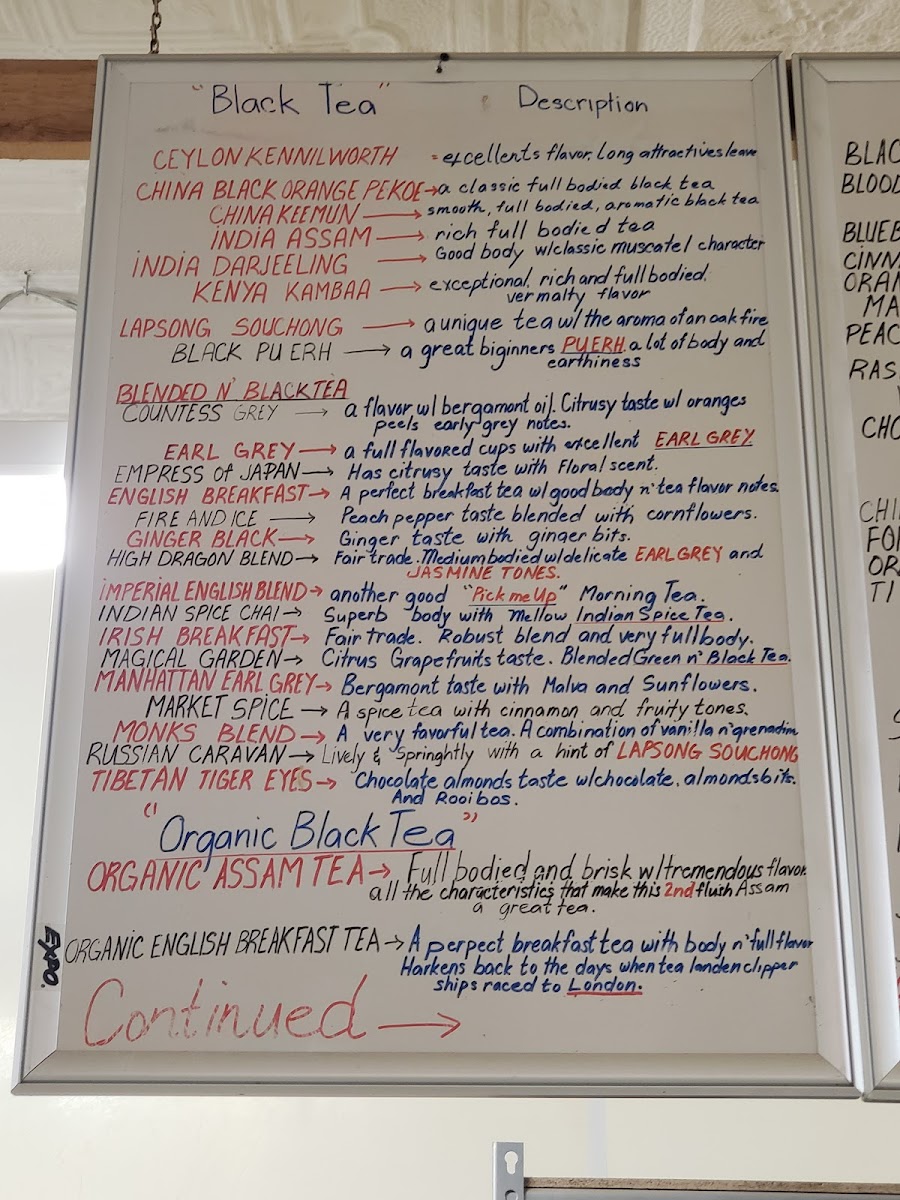 "Black Tea" Description
CEYLON KENNILWORTH = excellents flavor. Long attractives leave
CHINA BLACK ORANGE PEKOE→a classic full bodied black tea
CHINA KEEMUN → smooth, full bodied, aromatic black tea
INDIA ASSAM → rich full bodied tea
INDIA DARJEELING → Good body w/classic muscatel character
KENYA KAMBAA → exceptional, rich and full bodied.
ver malty flavor
LAPSONG SOUCHONG → a unique tea w/ the aroma of an oak fire
BLACK PU ERH → a great biginners PUERH. a lot of body and
earthiness
BLENDED N' BLACK TEA
COUNTESS GREY → a flavor w/ bergamont oil. Citrusy taste w/ oranges
peels early grey notes.
EARL GREY → a full flavored cups with excellent EARL GREY
EMPRESS Of JAPAN → Has citrusy taste with Floral scent.
ENGLISH BREAKFAST → A perfect breakfast tea w/ good body n' tea flavor notes.
FIRE AND ICE → Peach pepper taste blended with cornflowers.
GINGER BLACK → Ginger taste with ginger bits.
HIGH DRAGON BLEND → Fair trade. Medium bodied w/ delicate EARL GREY and
JASMINE TONES.
IMPERIAL ENGLISH BLEND → another good "Pick me Up" Morning Tea.
INDIAN SPICE CHAI → Superb body with Mellow Indian Spice Tea.
IRISH BREAKFAST → Fair trade. Robust blend and very full body.
MAGICAL GARDEN → Citrus Grapefruits taste. Blended Green n' Black Tea.
MANHATTAN EARL GREY → Bergamont taste with Malva and Sunflowers.
MARKET SPICE → A spice tea with cinnamon and fruity tones.
MONKS BLEND → A very favorful tea. A combination of vanilla n' grenadim
RUSSIAN CARAVAN → Lively & Springhtly with a hint of LAPSONG SOUCHONG
TIBETAN TIGER EYES → Chocolate almonds taste w/chocolate. almonds bits.
And Rooibos.
"Organic Black Tea"
ORGANIC ASSAM TEA → Full bodied and brisk w/ tremendous flavor.
all the characteristics that make this 2nd flush Assam
a great tea.
ORGANIC ENGLISH BREAKFAST TEA → A perpect breakfast tea with body n' full flavor
Harkens back to the days when tea landen clipper
ships raced to London.
Continued →
EXPO.
BLAC
BLOOD
BLUEB
CINN
ORAN
MA
PEAC
RAS
CHO
CHI
FO
OR
TI